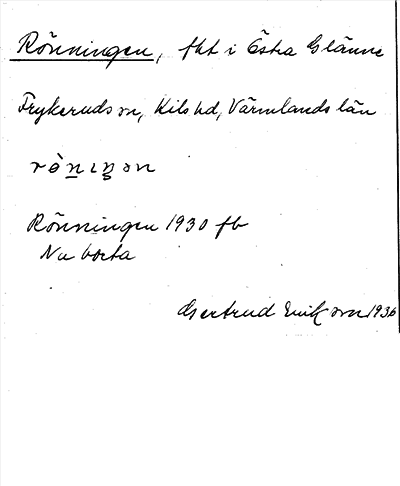 Rönningen, fht i Östra Glänne
Frykeruds sn, Kils hd, Värmlands län
Rönningen 1930 fb
Nu borta
Gertrud Eriksson 1936